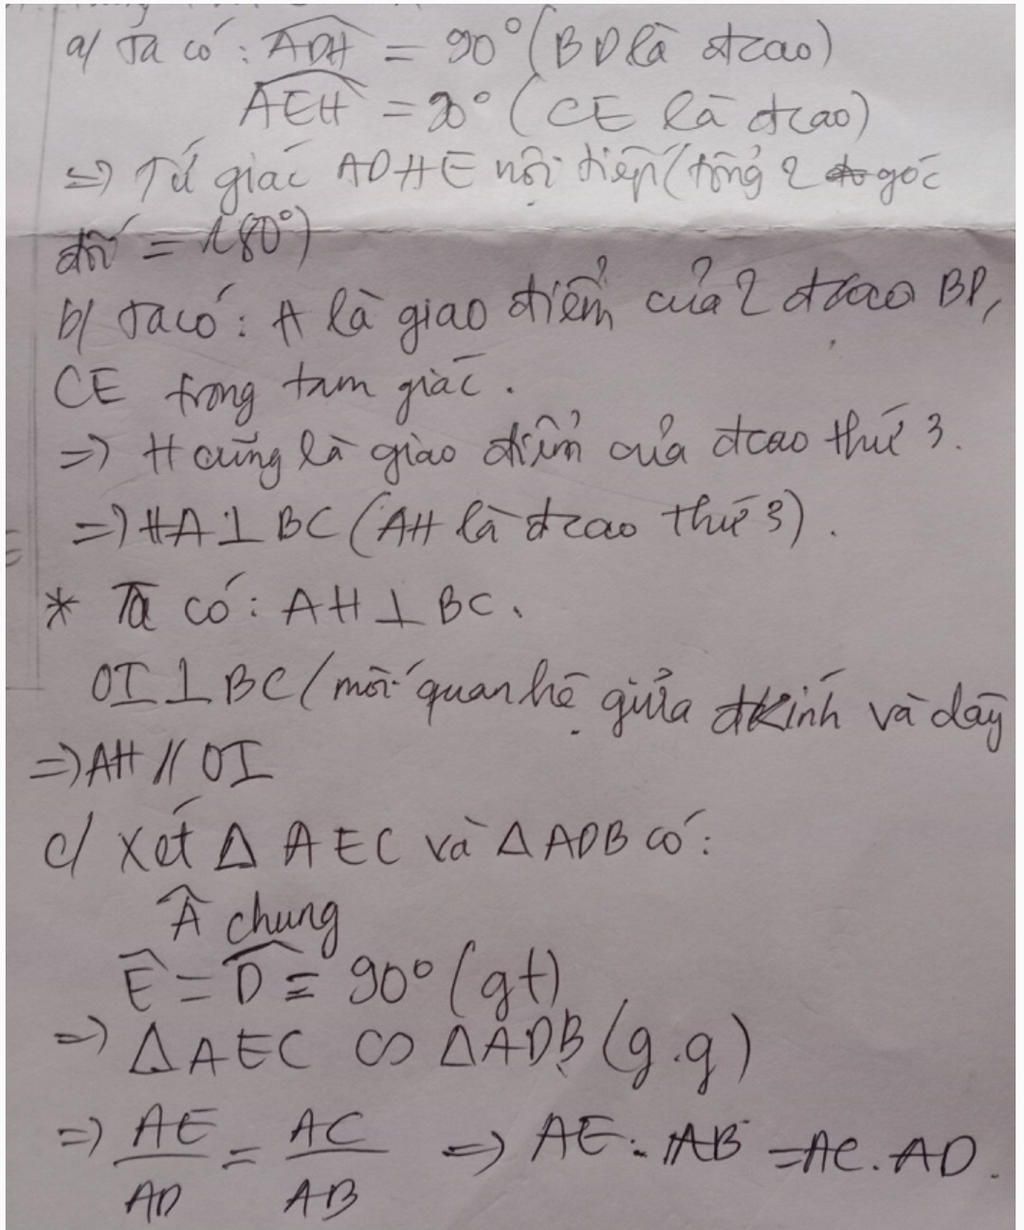 a/ Ta có: ADH = 90° (BD là đcao)
AEH = 90° (CE là đcao)
=> Tứ giác ADHE nội tiếp (tổng 2 góc
đối = 180°)
b/ Ta có: H là giao điểm của 2 đcao BD,
CE trong tam giác.
=> H cũng là giao điểm của đcao thứ 3.
=> HA ⊥ BC (AH là đcao thứ 3).
* Ta có: AH ⊥ BC.
OI ⊥ BC (mối quan hệ giữa đkính và dây
=> AH // OI
c/ Xét Δ AEC và Δ ADB có:
Â chung
Ê = D̂ = 90° (gt)
=> ΔAEC ∽ ΔADB (g.g)
=> AE/AD = AC/AB => AE . AB = AC . AD.